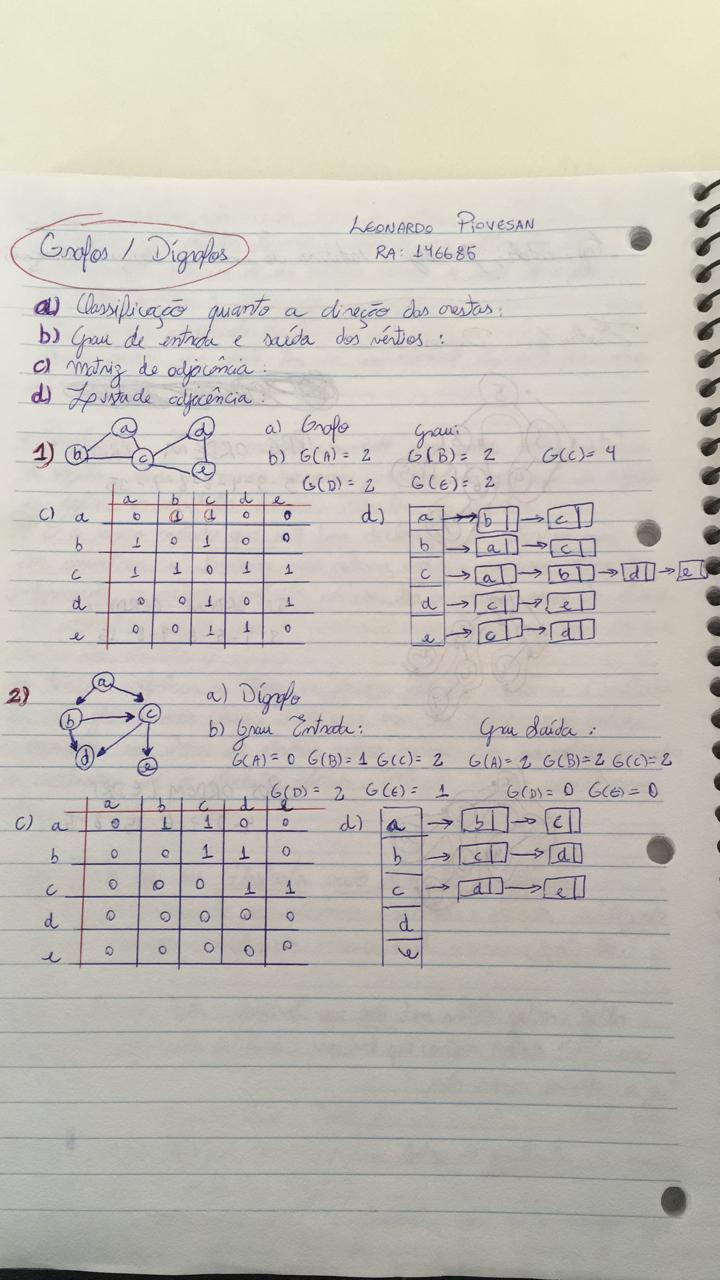 LEONARDO PIOVESAN
Grafos / Dígrafos
RA: 146685
a) Classificação quanto a direção das arestas:
b) Grau de entrada e saída dos vértios :
c) Matriz de adjacência :
d) de adjacência :
1)
a d
b c
e
a) Grafo Grau:
b) G(A) = 2 G(B) = 2 G(C) = 4
G(D) = 2 G(E) = 2
c) a b c d e
a 0 1 1 0 0
b 1 0 1 0 0
c 1 1 0 1 1
d 0 0 1 0 1
e 0 0 1 1 0
d) a b c
b a c
c a b d e
d c e
e c d
2)
a
b c
d e
a) Dígrafo
b) Grau Entrada: Grau Saída :
G(A) = 0 G(B) = 1 G(C) = 2 G(A) = 2 G(B) = 2 G(C) = 2
G(D) = 2 G(E) = 1 G(D) = 0 G(E) = 0
c) a b c d e
a 0 1 1 0 0
b 0 0 1 1 0
c 0 0 0 1 1
d 0 0 0 0 0
e 0 0 0 0 0
d) a b c
b c d
c d e
d
e